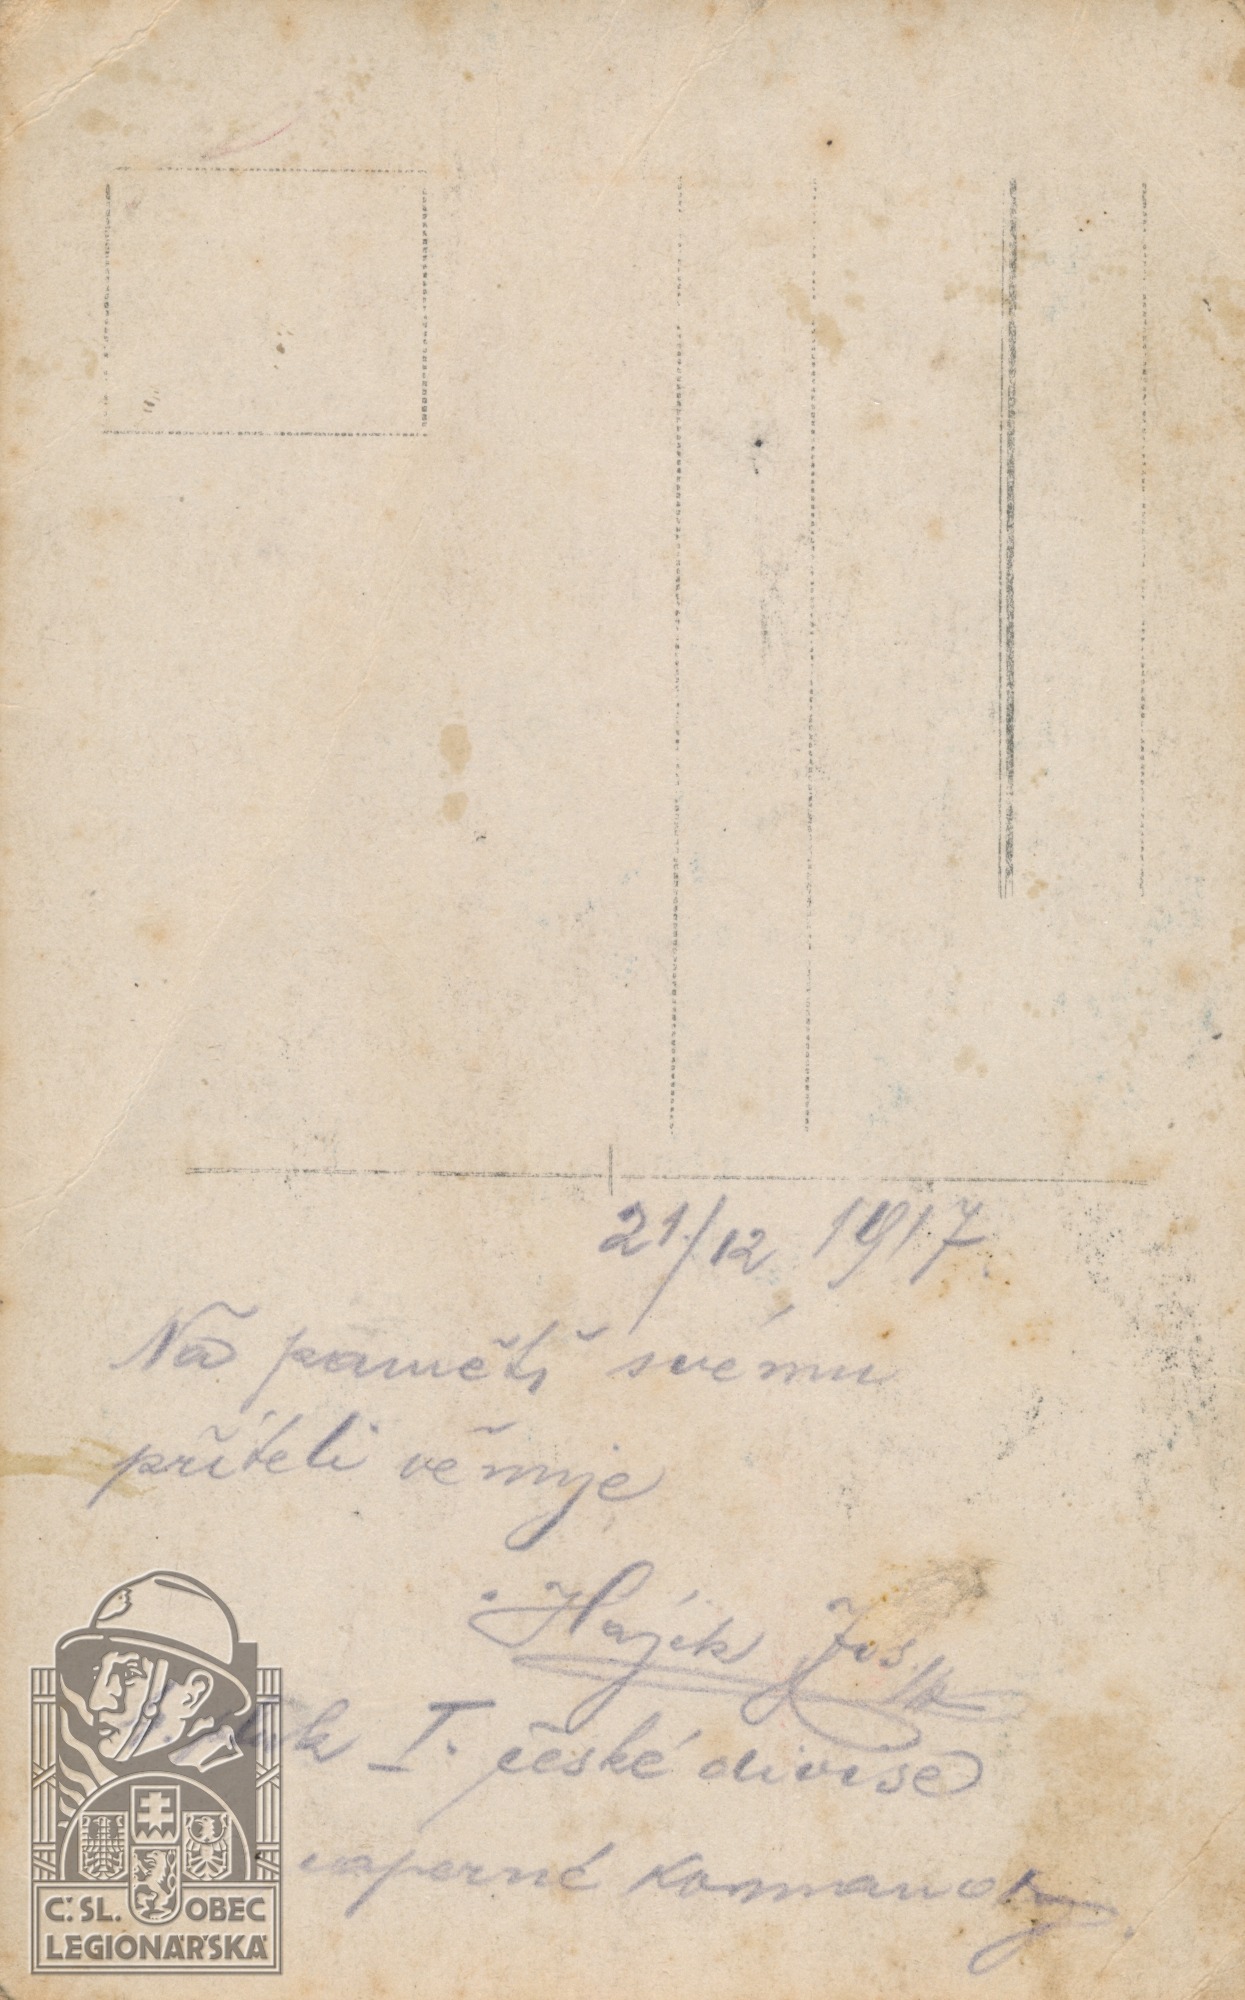 21/12 1917
Na paměť svému
příteli věnuje
Hájík Jos.
pluk I. české divise
saperné kommandy.
Č.SL. OBEC
LEGIONÁŘSKÁ